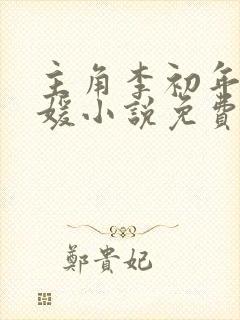 主角李初年
媛小說免費
鄭貴妃